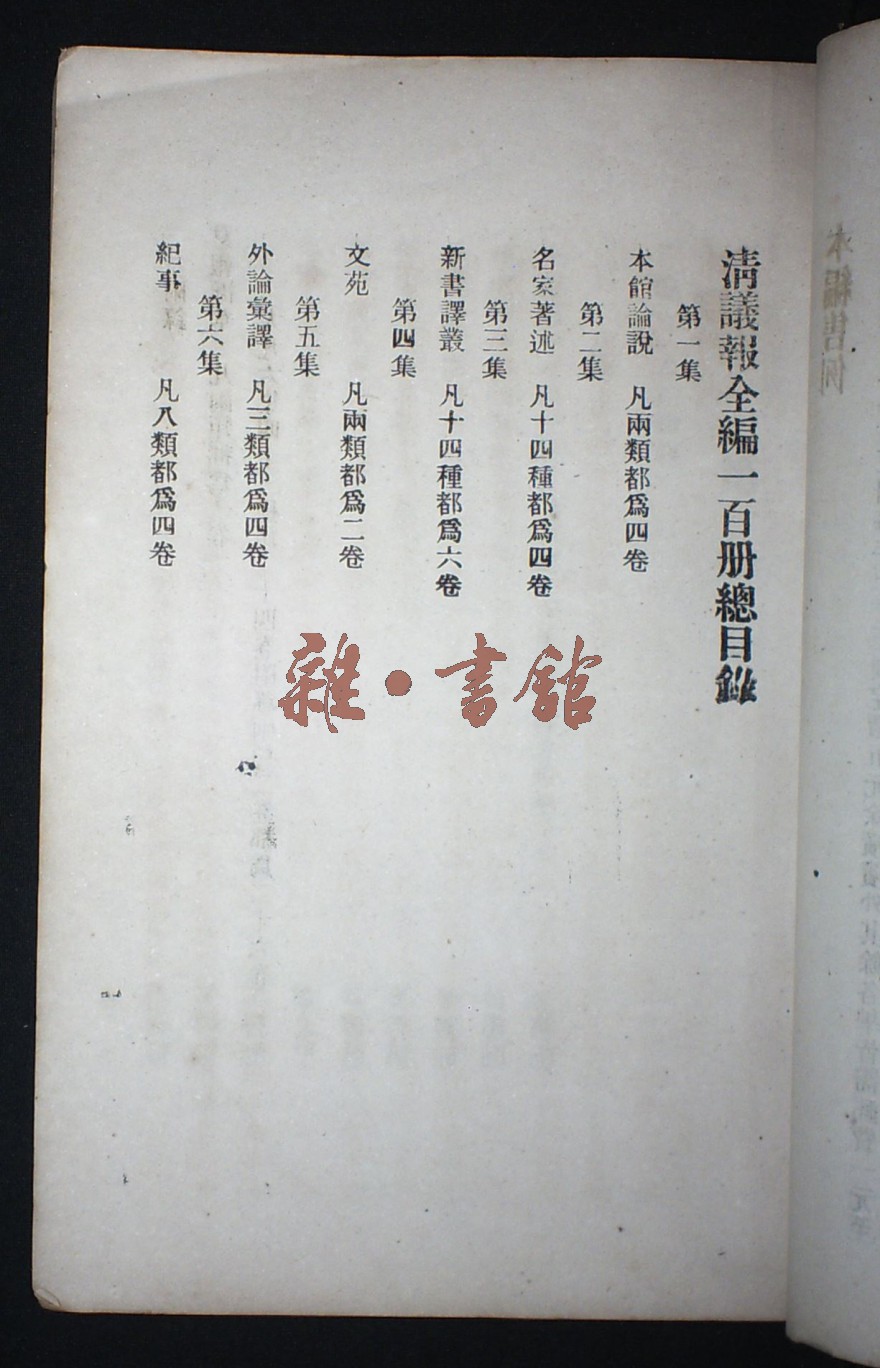 清議報全編一百册總目錄
第一集
本館論說 凡兩類都爲四卷
第二集
名家著述 凡十四種都爲四卷
第三集
新書譯叢 凡十四種都爲六卷
第四集
文苑 凡兩類都爲二卷
第五集
外論彙譯 凡三類都爲四卷
第六集
紀事 凡八類都爲四卷
雜·書館
本編售例